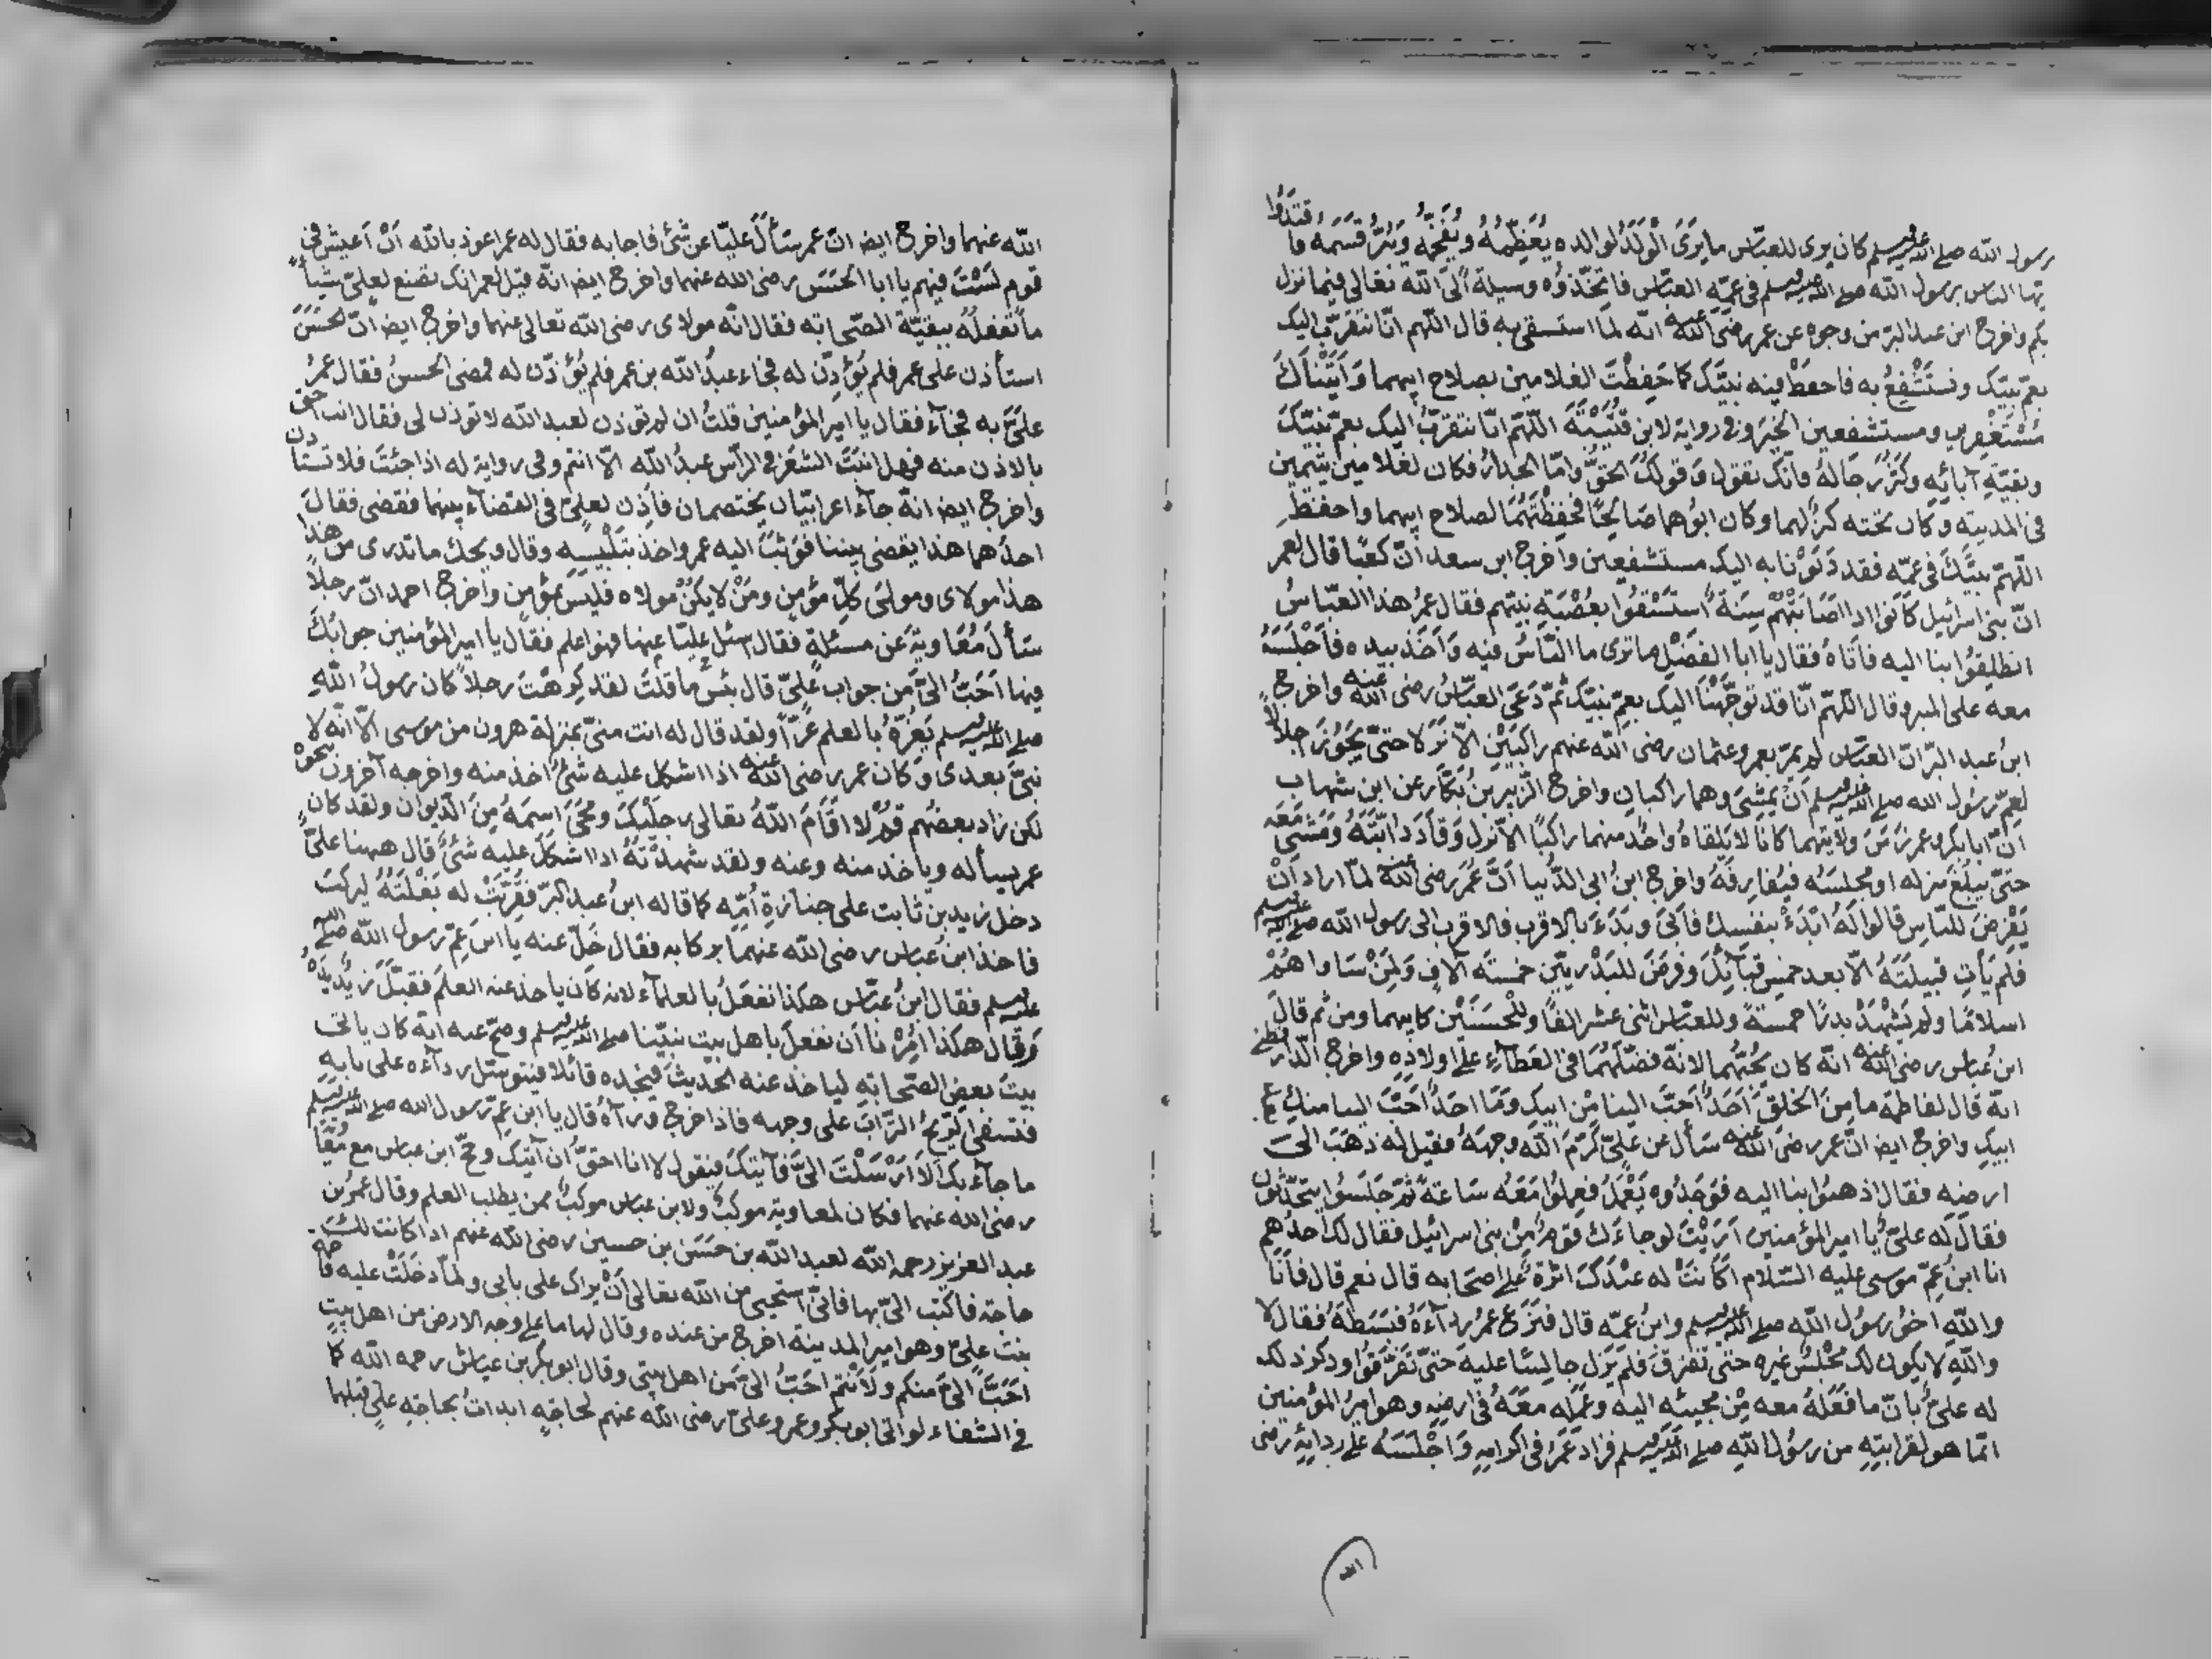 رسول الله صلى الله عليه وسلم كان يرى للعباس ما يَرَى الْوَلَدُ لوالده يُعَظِّمُهُ ويُفَخِّمُهُ وَيَبَرُّ قَسَمَه فاقتدُوا
ايّها الناس برسول الله صلى الله عليه وسلم فى عَمِّهِ العبّاس فاتخذوُه وسيلةً الى الله تعالى فيما نزل
بكم واخرج ابن عبد البرّ من وجوه عن عمر رضى الله عنه انّه لما استسقى به قال اللّهم انّا نتقرّب اليك
بعمّ نبيّك ونستَشْفِعُ به فاحفظْ فيه نبيّك كما حَفِظْتَ الغلامين بصلاح ابيهما وَاَتَيْنَاكَ
مُسْتَغْفِرين ومستشفعين الخبر وفى رواية لابن قُتَيْبَةَ اللّهمّ انّا نتقرّبُ اليك بعمّ نبيّكَ
وبقيّةِ آبائِهِ وكَثُرَ رجَالهُ فانّك تقول وَقولكَ الحقُّ وامّا الجدارُ فكان لغلامين يتيمين
فى المدينة وكان تحته كنزٌ لهما وكان ابوُهما صَالحًا فحَفِظْتَهُمَا لصلاح ابيهما واحفظ
اللّهمّ نبيّكَ فى عمّه فقد دَنَوْنا به اليك مستشفعين واخرج ابن سعد انّ كعبًا قال لعمر
انّ بنى اسرائيل كانوا اذا اصَابَتْهُمْ سَنَةٌ استَسْقُوا بعُصْبَةِ نبيّهم فقال عمُر هذا العبّاسُ
انطلِقوُا بنا اليه فاتاهُ فقال يا ابا الفَضْلِ ما ترى ما النّاسُ فيه وَاَخَذ بيده فاَجْلَسَهُ
معه على المنبر وقال اللّهمّ انّا قد توجّهْنَا اليك بعمّ نبيّك ثمّ دَعَى العبّاسُ رضى الله عنه واخرج
ابنُ عبد البرّ انّ العبّاس لم يمرّ بعمر وعثمان رضى الله عنهم راكبَيْن الاّ نَزَلا حتّى يَجُوْزَ اجلالاً
لعمّ رسُول الله صلى الله عليه وسلم اَنْ يَمْشِىَ وهما راكبانِ واخرج الزّبيرُ بنُ بَكّار عن ابن شهاب
انّ ابا بكر وعمر زَمَنَ ولايتهما كانا لا يلقاهُ واحدٌ منهما راكبًا الاّ نزل وَقادَ دابّتَهُ وَمَشَى مَعَه
حتّى يَبْلُغَ منزله او مجلسَه فيفارقَهُ واخرج ابنُ ابى الدّنيا اَنّ عُمَرَ رضى الله عنه لمّا اراد اَنْ
يَفْرِضَ للنّاسِ قالوُا لَهُ ابْدَءْ بنفسِك فاَبَى وبَدَءَ بالاقرب فالاقرب الى رسول الله صلى الله عليه وسلم
فلم يَأتِ قبيلَتَهُ الاّ بعد خمسِ قبآئلَ وَفرضَ للبدْريّين خمسةَ آلافٍ وَلِمَنْ سَاواهُمْ
اسلامًا ولم يَشْهَدْ بدرًا خمسةً وللعبّاس اثنى عشر الفًا وَلِلْحَسَنَيْن كابيهما ومن ثم قالَ
ابنُ عبّاس رضى الله عنه انّه كان يُحِبُّهُما لانّه فضّلَهُما فى العَطآءِ على اولادِه واخرج الدّارقطنى
انه قال لفاطمة ما مِنَ الخلقِ اَحَدٌ اَحَبَّ الينا مِنْ ابيكِ وَمَا احدٌ اَحَبَّ الينا منكِ بعد
ابيكِ واخرج ايضا انّ عمر رضى الله عنه سَأل عن عَلِىٍّ كَرّمَ الله وجهَهُ فقيل له ذَهَبَ الى
ارضه فقال اذهبُوا بنا اليه فوَجَدُوه يَعْمَلُ فعمِلُوا مَعَهُ سَاعَةً ثمّ جَلَسُوا يتحدّثون
فقالَ له علىٌّ يا امير المؤمنين اَرَيْتَ لو جاءَك قومٌ مِنْ بنى اسرائيل فقال لك احدُهم
انا ابنُ عمّ موسى عليه السّلام اَكانَتْ له عنْدَكَ اثرةٌ على اصحَابه قال نعم قال فاَنَا
والله اخوُ رسُول الله صلى الله عليه وسلم وابنُ عمّه قال فنَزَعَ عمرُ ردآءَهُ فبَسَطَهُ فقال لا
والله لا يكون لك مَجْلِسٌ غيره حتّى نفترقَ فلم يَزَل جالِسًا عليه حتّى تَفَرَّقُوا وذكر ذلك
له علىٌّ بانّ ما فَعَلَهُ معه مِنْ مجيئِه اليه وعَمَله معَهُ فى ارضِه وهو اميرُ المؤمنين
انّما هو لقرابتِهِ من رسُول اللهِ صلى الله عليه وسلم فزاد عُمَرُ فى اكرامِهِ وَاَجْلَسَهُ على ردائِهِ رضى
الله عنهما واخرج ايضا انّ عمر سَأَلَ عَليًّا عن شئ فاجابه فقال له عمر اعوذ بالله اَنْ اَعيشَ فى
قومٍ لَسْتَ فيهم يا ابا الحَسَن رضى الله عنهما واخرج ايضا انّه قيل لعمر انك تصنع لعلىّ شيأً
ما تَفْعَلُهُ ببقيّة الصّحابه فقال انّه مولاى رضى الله تعالى عنهما واخرج ايضا انّ الحسَنَ
استأذن على عمر فلم يُؤْذَنْ له فجاء عبدُ الله بن عمر فلم يُؤْذَن له فمضى الحسنُ فقال عمرُ
علىَّ به فجآء فقال يا امير المؤمنين قلتُ ان لم تؤذن لعبد الله لا تؤذن لى فقال انت احق
بالاذن منه فهل انبَتَ الشعَرَ فى الرّأس عبدُ الله الاّ انتم وفى رواية له اذا جئتَ فلا تستاذن
واخرج ايضا انهّ جآء اعرابيّان يختصمان فأذِن لعلىٍّ فى القضآء بينهما فقضى فقال
احدُهما هذا يقضى بيننا فوَثَبَ اليه عمر واخذ بتَلْبيبِهِ وقال ويحك ما تدرى من هذا
هذا مولاى ومولَى كلّ مؤمِنٍ ومَنْ لا يكُنْ مولاه فليسَ بمؤمنٍ واخرج احمد انّ رجلاً
سَأَلَ مُعَاويَة عَن مسئلةٍ فقال سَلْ عليًّا عنها فهو اعلم فقال يا امير المؤمنين جوابُكَ
فيها اَحَبُّ الىَّ من جواب علىٍّ قال بئسَ ما قلتَ لقد كرهْتَ رجلاً كان رسولُ اللهِ
صلى الله عليه وسلم يَغُرُّهُ بالعلم غَرًّا ولقد قال له انت منّى بمنزلة هرون من موسى الاّ انّه لا
نبىَّ بعدى وَكان عمر رضى الله عنه اذا اشكل عليه شئٌ اخذ منه واخرجه آخرون بنحوْه
لكن زاد بعضهُم قُمْ لا اقَامَ اللهُ تعالى رجلَيْكَ ومحَىَ اسمَهُ مِنَ الدّيوان ولقد كان
عمر يسأله ويأخذ منه وعنه ولقد شَهِدْتُهُ اذا اشكَلَ عليه شئٌ قال ههنا علىٌّ
دخل زيد بن ثابت على جنازةِ اُمّه كما قاله ابنُ عبد البرّ فقُرّبَتْ له بَغْلَتُهُ ليركبَ
فاخذ ابنُ عبّاس رضى الله عنهما بركابه فقال خَلّ عنه يا ابنَ عمّ رسول الله صلى الله
عليه وسلم فقال ابنُ عبّاس هكذا نفعَلُ بالعلمآء لانه كان ياخذ عنه العلمَ فقبّلَ زيدٌ يَدَهُ
وَقال هكذا اُمِرْنا اَن نفعلَ باهل بيت نبيّنا صلى الله عليه وسلم وصحّ عنه انه كان ياتى
بيتَ بعضِ الصّحابةِ لياخذ عنه الحديثَ فيجده قائلا فيتوسّل ردآءَه على بابهِ
فتسفى الرّيحُ التّرابَ على وجهه فاذا خرج ورآهُ قال يا ابن عمّ رسول الله صلى الله عليه وسلم
ما جآءَ بك اَلا اَرْسَلْتَ الىَّ فآتيك فيقول لا انا احقُّ ان آتيك وحجّ ابن عباس مع مُعَاوية
رضى الله عنهما فكان لمعاوية موكبٌ ولابن عباس موكبٌ ممن يطلب العلم وقال عمرُ بن
عبد العزيز رحمه الله لعبد الله بن حَسَن بن حسين رضى الله عنهم اذا كانت لك
حاجة فاكتب الىّ بها فانّى استحيى من الله تعالى اَنْ يراك على بابى ولمّا دخَلَتْ عليه فاطمة
بنت علىّ وهو امير المدينة اخرج من عنده وقال لها ما على وجه الارض من اهل بيتٍ
احَبَّ الىّ منكم ولَاَنْتم احَبُّ الىّ من اهل بيتى وقال ابو بكر بن عياش رحمه الله كما
فى الشفاء لو اتانى ابو بكر وعمر وعلىّ رضى الله عنهم لحاجةٍ لبدأتُ بحاجةِ علىّ قبلهما